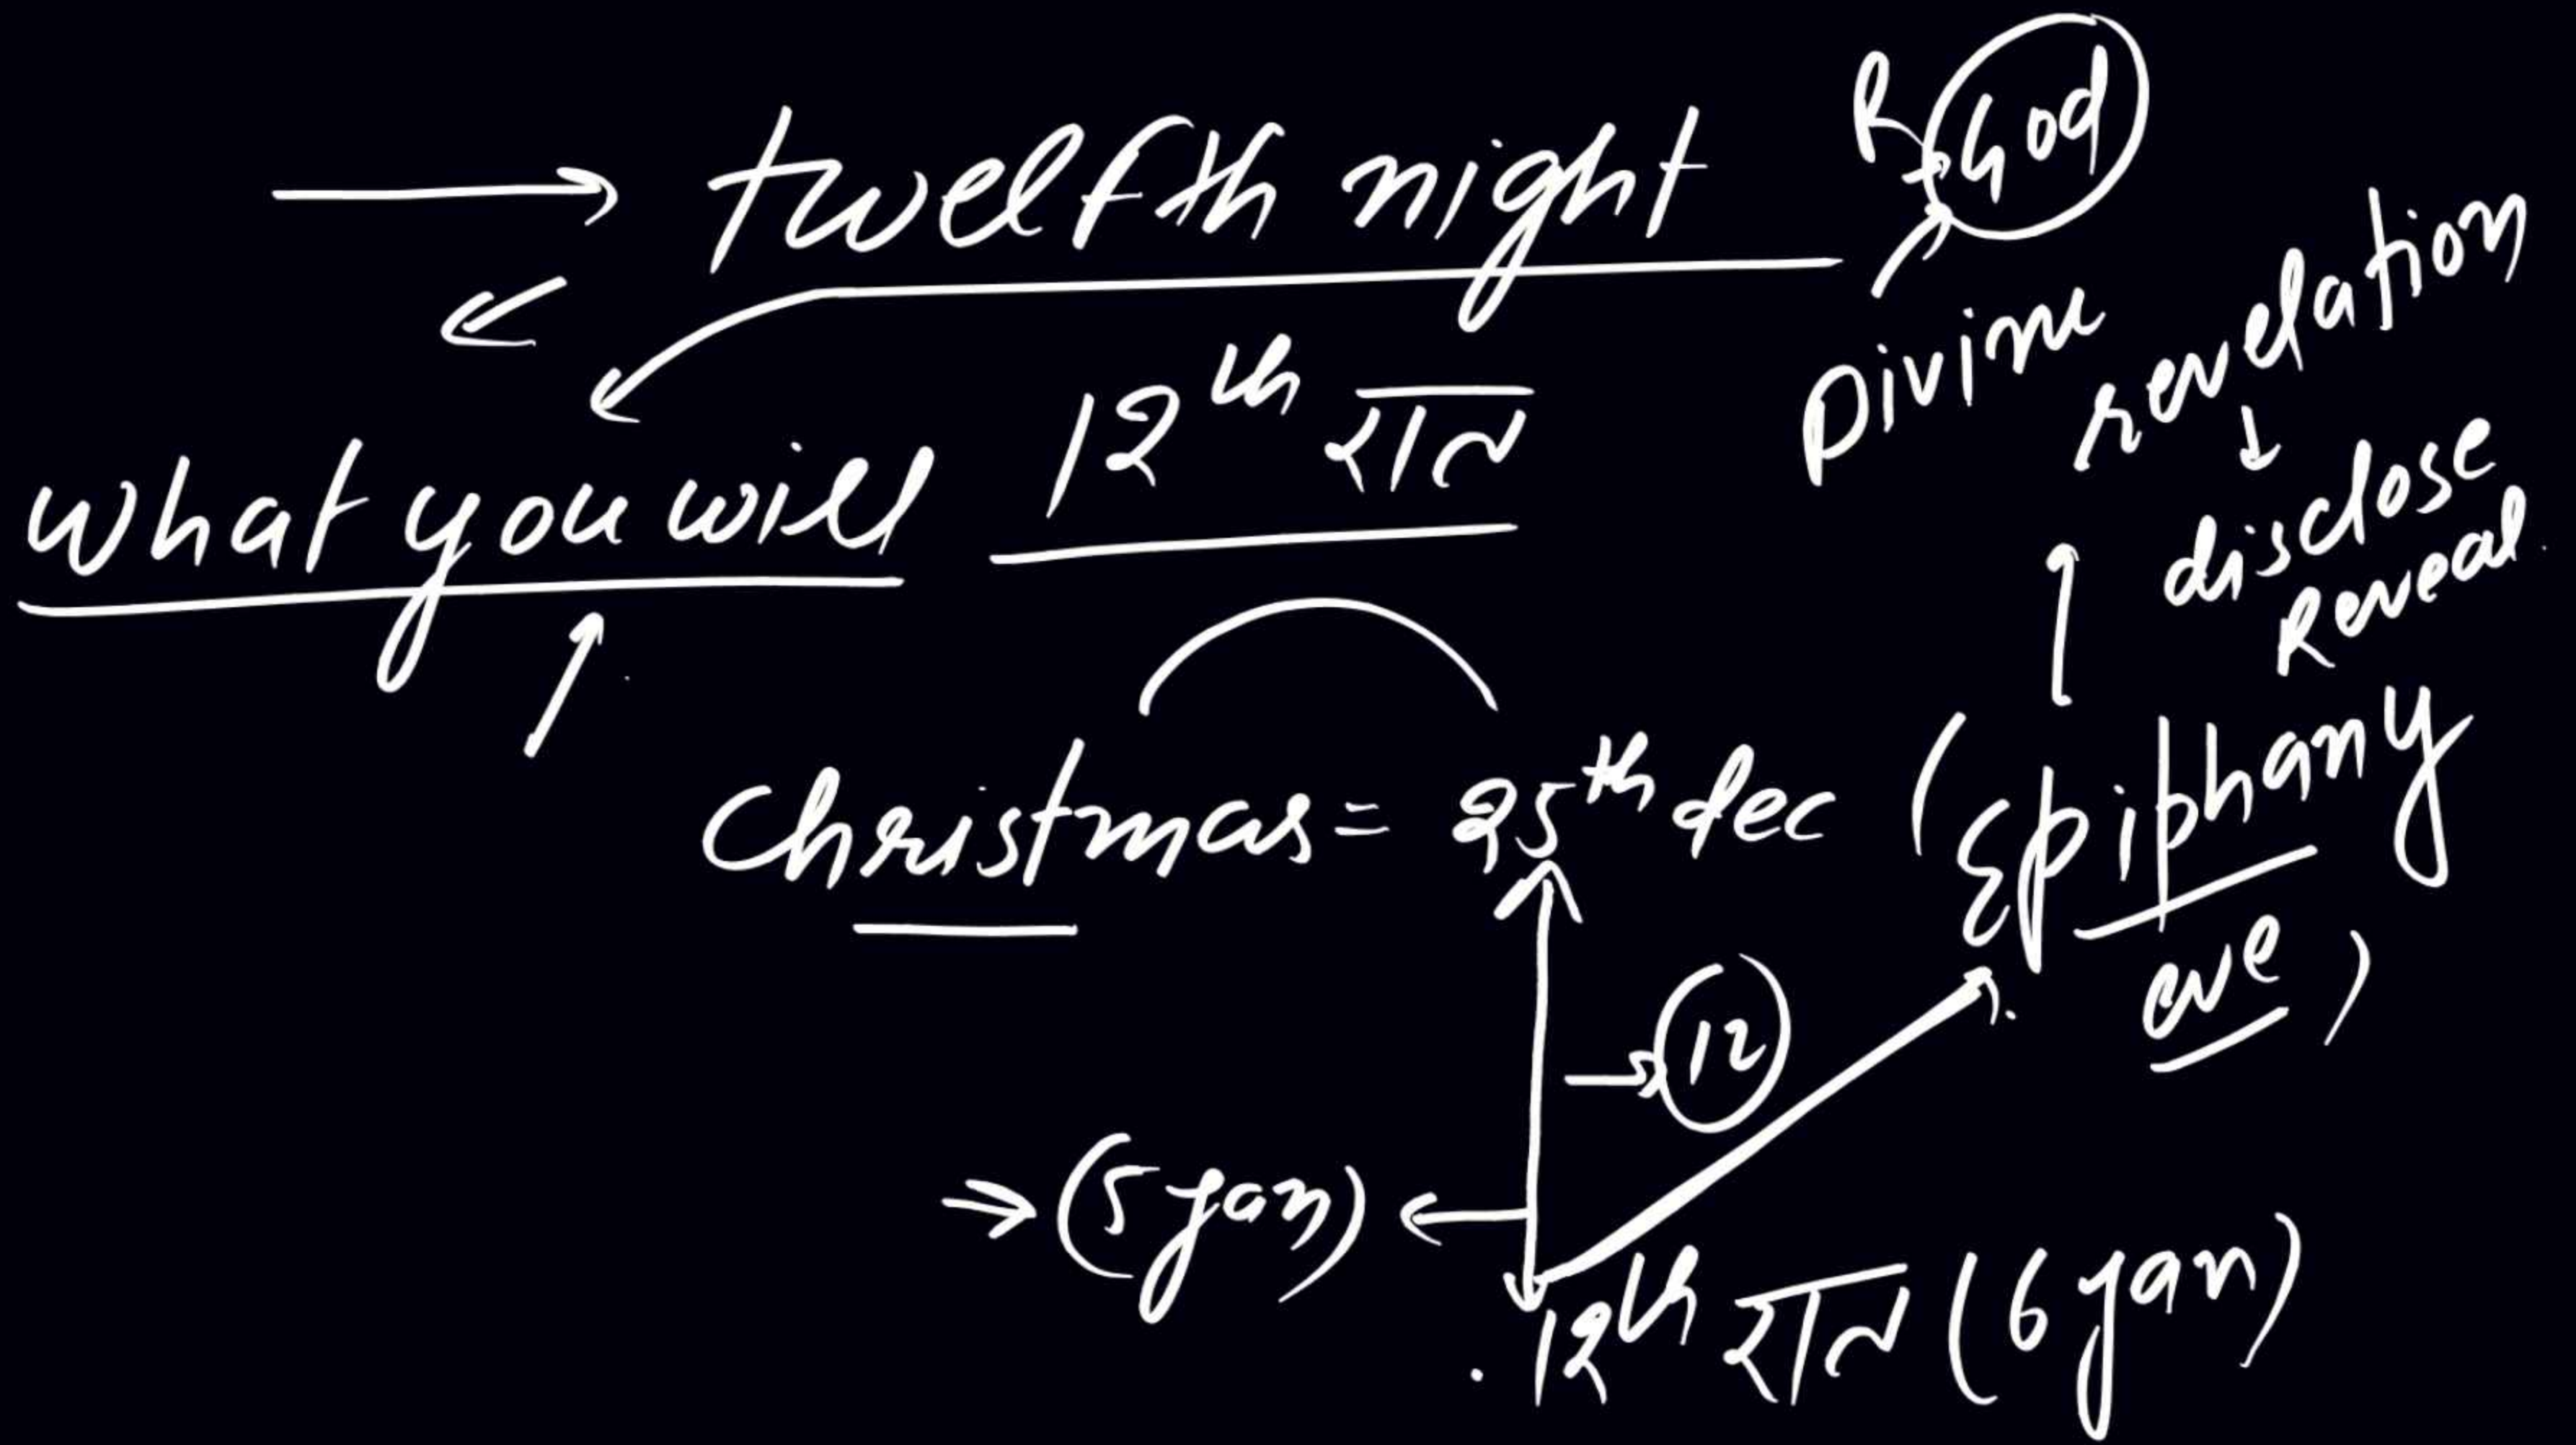 twelfth night
R God
Divine revelation
disclose
Reveal
what you will
12th रात
Christmas = 25th dec (Epiphany
eve)
12
(5 jan)
12th रात (6 jan)